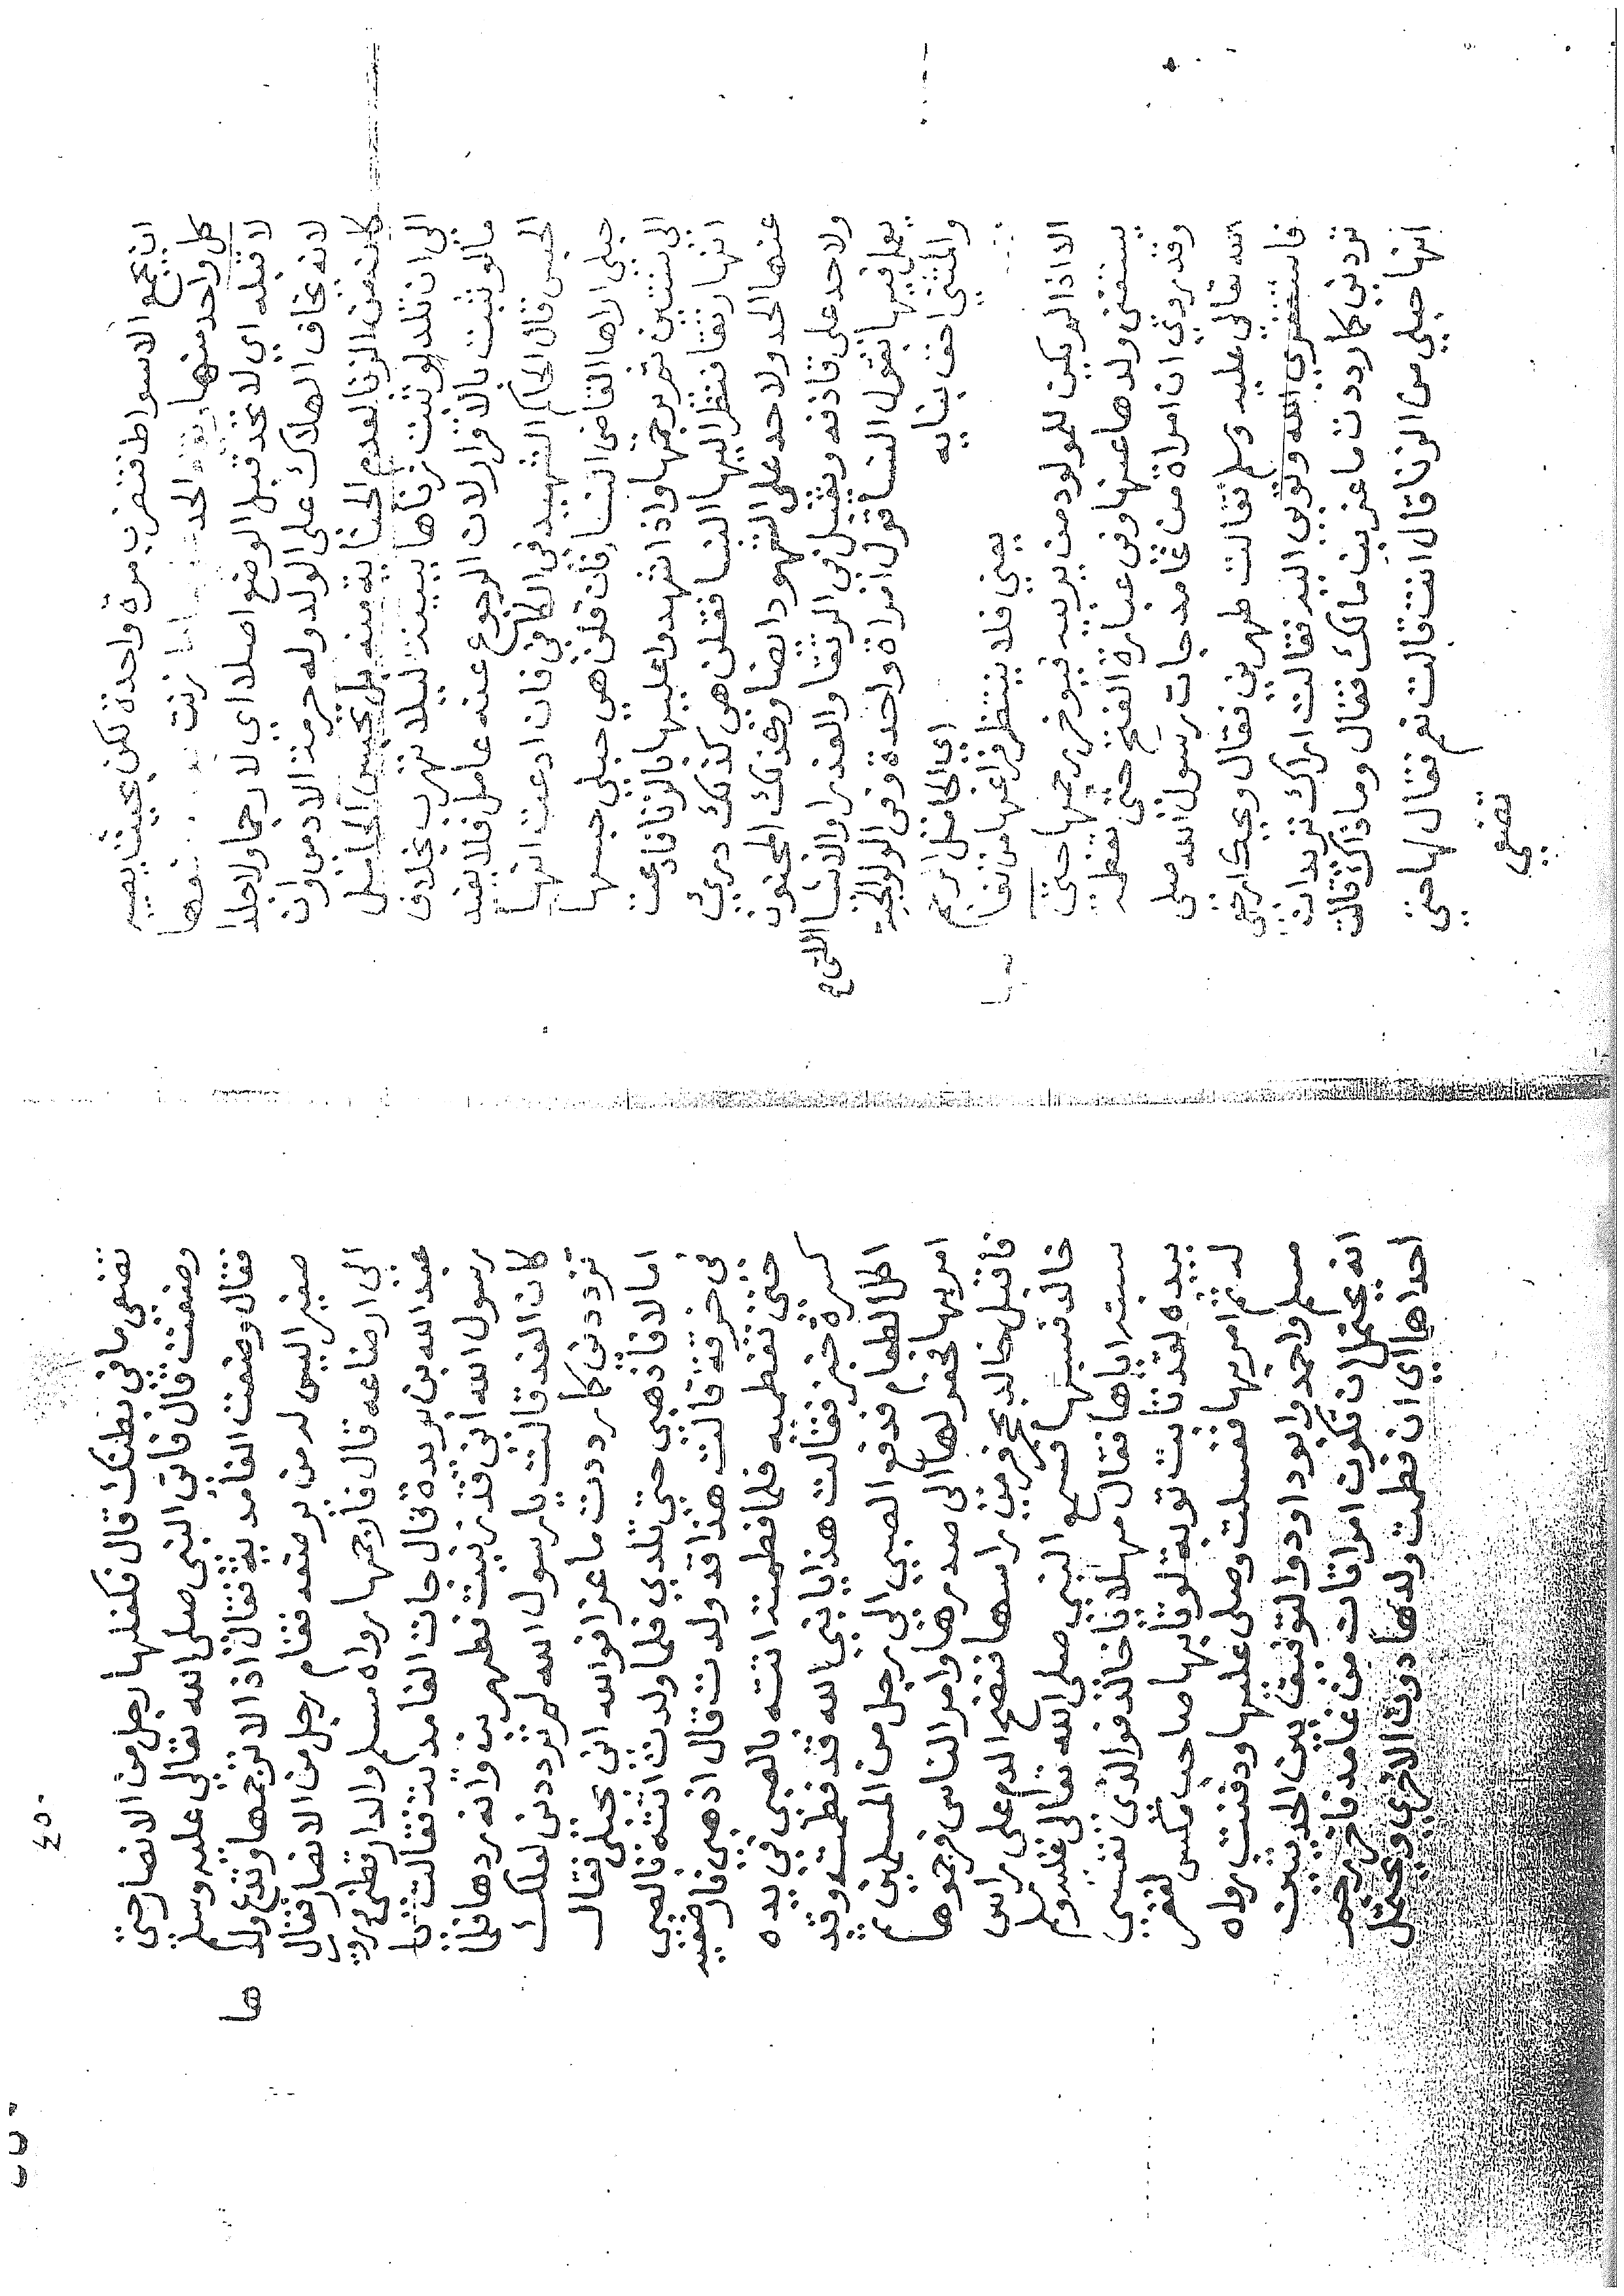 ان يجمع الاسواط فتضرب مرة واحدة لكن بحيث يصيبه
كل واحد منها الحد زنت
لا قبله اي لا تحد قبل الوضع اصلا اي لا رجما ولا جلدا
لانه يخاف الهلاك على الولد وله حرمة الادمي وان
كان من الزنا لعدم الجناية منه بل تحبس الحامل
الى ان تلد لو ثبت زناها ببينة ليلا تهرب بخلاف
ما لو ثبت بالاقرار لان الرجوع عنه عامل فلا يفيد
الحبس قال الحاكم الشهيد في الكافي فان ادعت انها
حبلى اراها القاضي النسا فان قلن هي حبلى حبسها
الى سنتين ثم يرجمها واذا شهدوا عليها بالزنا فادعت
انها رتقا فنظر اليها النسا فقلن هي كذلك دري
عنها الحد ولا حد على الشهود ايضا وكذلك المجنون
ولا حد على قاذفه ويقبل في الرتقا والعذرا والاشيا التي
يعمل فيها بقول النسا قول امراة واحدة وفي الولوالجية
والمثنى احق بناية
اي الحامل لا ترجم
يعني فلا ينتظر فراغها من نفا
الا اذا لم يكن للمولود من يربيه فيوخر رجمها حتى
يستغني ولدها عنها وفي عبارة الفتح حتى تفطمه
وقد روي ان امراة من غامد جات رسول الله صلى
الله تعالى عليه وسلم فقالت طهرني فقال ويحك ارجعي
فاستغفري الله وتوبي اليه فقالت اراك تريد ان
تردني كما رددت ماعز بن مالك فقال وما ذاك قالت
انها حبلى من الزنا قال انت قالت نعم فقال لها حتى
تضعي
٤٥٠
تضعي ما في بطنك قال فكفلها رجل من الانصار حتى
وضعت قال فاتى النبي صلى الله تعالى عليه وسلم
فقال وضعت الغامدية فقال اذا لا نرجمها وندع ولدها
صغيرا ليس له من يرضعه فقام رجل من الانصار فقال
الى ارضاعه قال فارجمها رواه مسلم والدارقطني وروي
عبد الله بن بريدة قال جات الغامدية فقالت يا
رسول الله اني قد زنيت فطهرني وانه ردها فلما
كان الغد قالت يا رسول الله لم تردني لعلك
تردني كما رددت ماعزا فوالله اني حبلى فقال
اما لا فاذهبي حتى تلدي فلما ولدت اتته بالصبي
في خرقة قالت هذا قد ولدت قال اذهبي فارضعيه
حتى تفطميه فلما فطمته اتته بالصبي في يده
كسرة خبز فقالت هذا يا نبي الله قد فطمته وقد
اكل الطعام فدفع الصبي الى رجل من المسلمين ثم
امر بها فحفر لها الى صدرها وامر الناس فرجموها
فاقبل خالد بحجر فرمى راسها فنضح الدم على راس
خالد فسبها فسمع النبي صلى الله تعالى عليه وسلم
سبه اياها فقال مهلا يا خالد فوالذي نفسي
بيده لقد تابت توبة لو تابها صاحب مكس لغفر
له ثم امر بها فغسلت وصلى عليها ودفنت رواه
مسلم واحمد وابو داود والتوفيق بين الحديثين
انه يحتمل ان تكون امراتان من غامد فاخر رجم
احداهما الى ان فطمت ولدها دون الاخرى ويحتمل